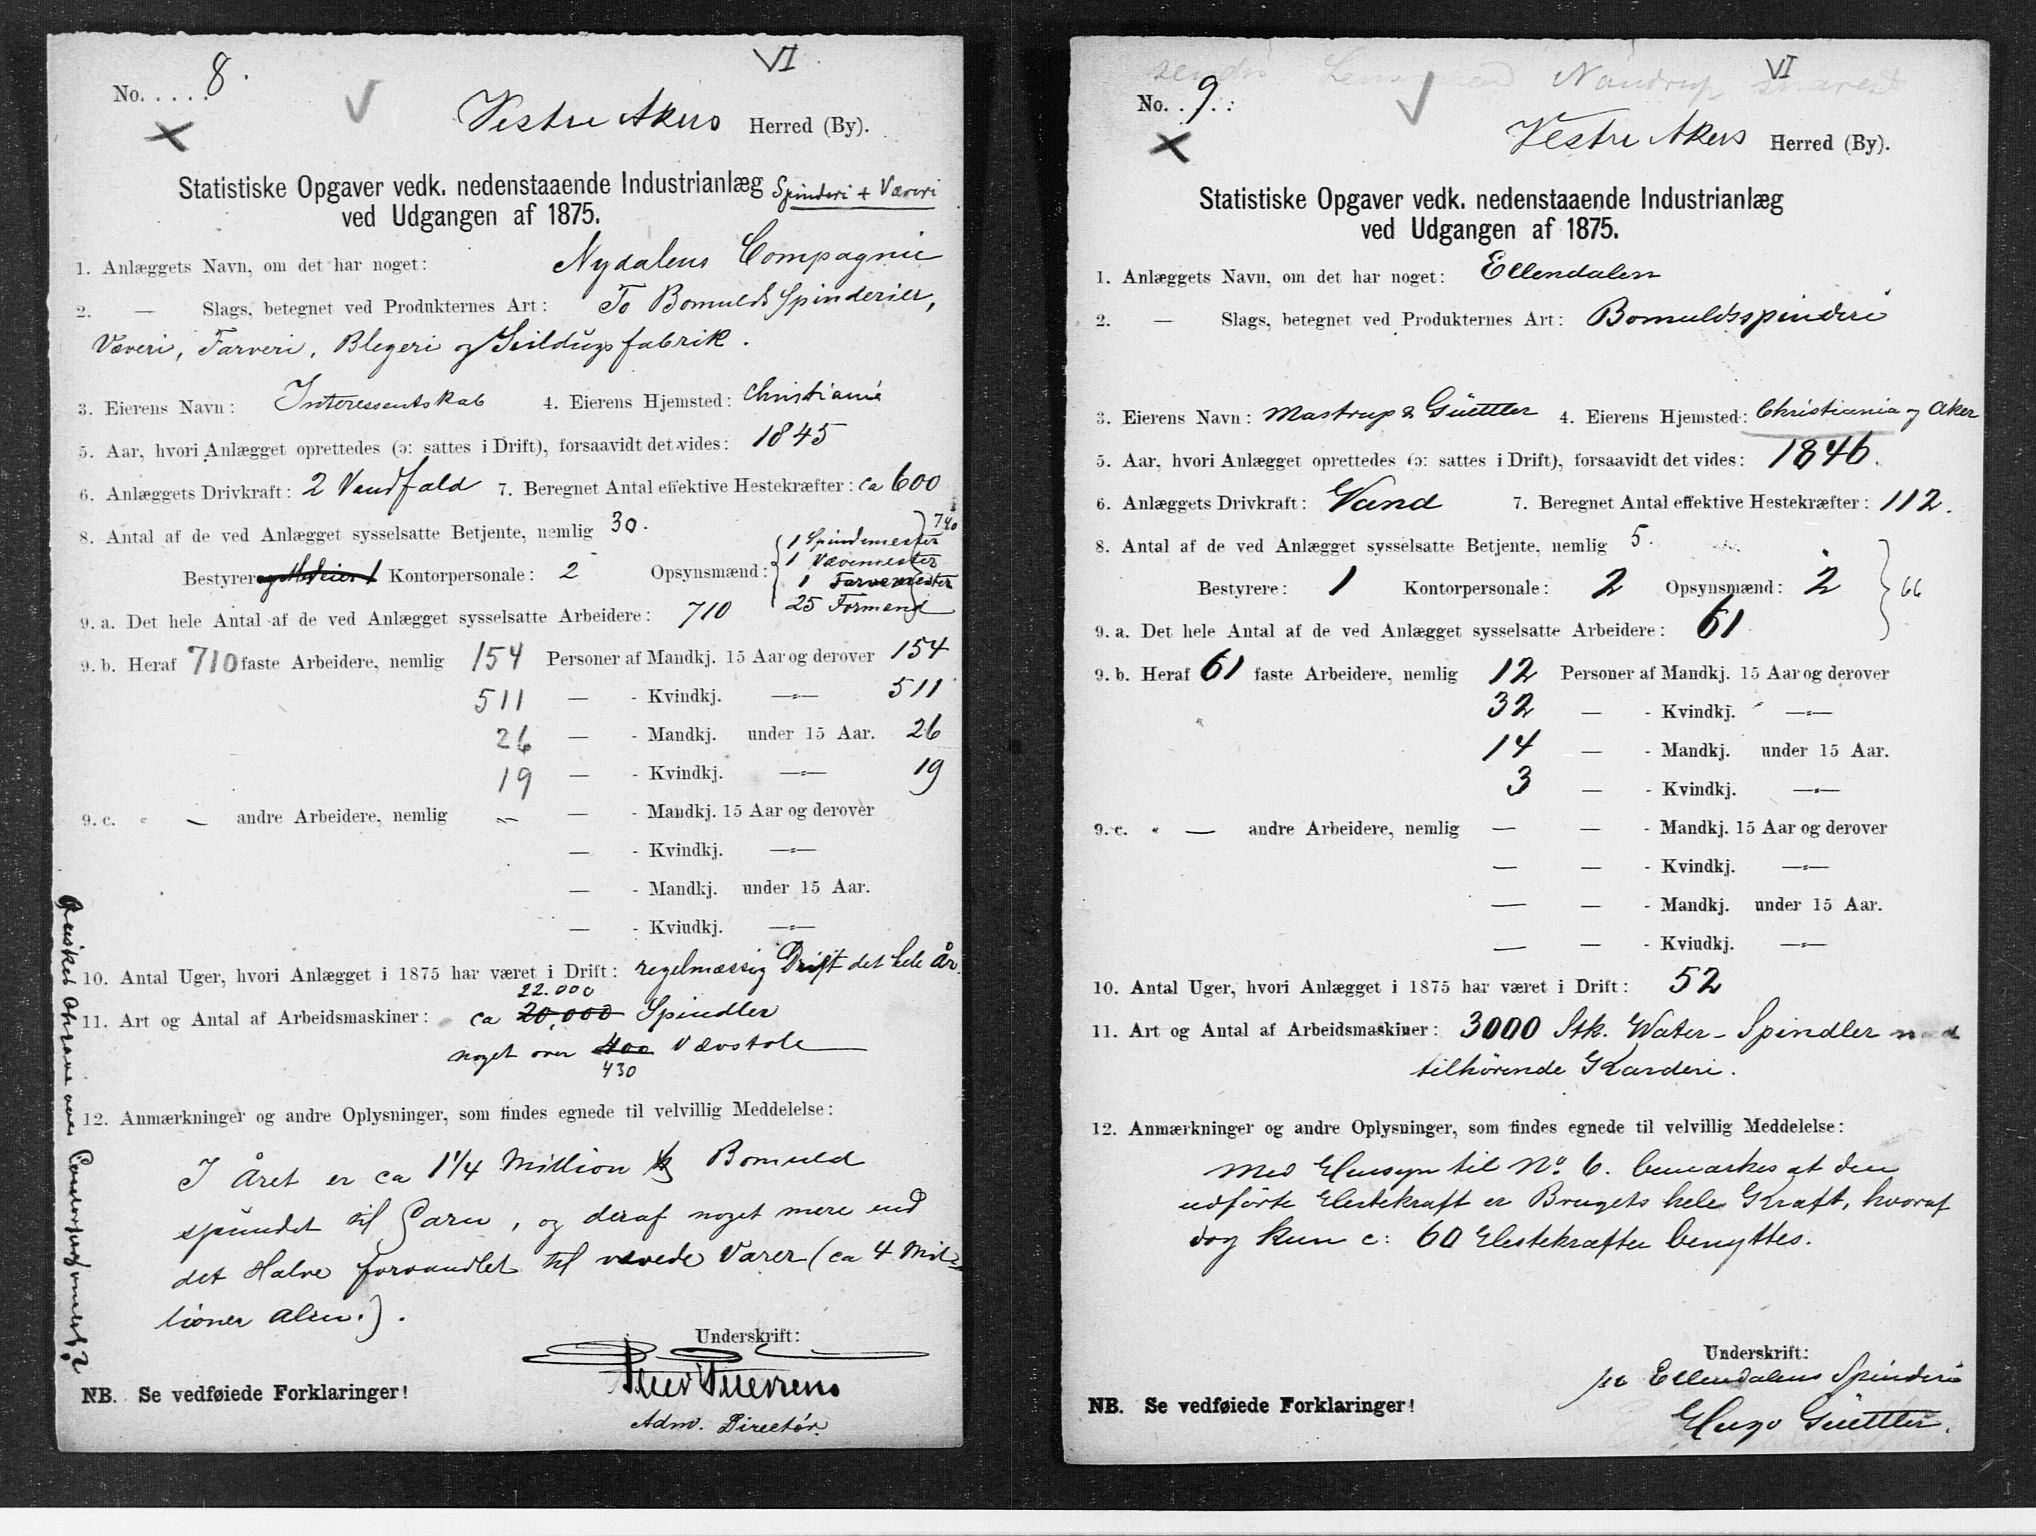 No. . . . . 8.
VI
Vestre Akers Herred (By).
Statistiske Opgaver vedk. nedenstaaende Industrianlæg Spinderi + Væveri
ved Udgangen af 1875.
1. Anlæggets Navn, om det har noget: Nydalens Compagnie
2. — Slags, betegnet ved Produkternes Art: To Bomulds Spinderier,
Væveri, Farveri, Blegeri og Seildugsfabrik.
3. Eierens Navn: Interessentskab 4. Eierens Hjemsted: Christiania
5. Aar, hvori Anlægget oprettedes (ɔ: sattes i Drift), forsaavidt det vides: 1845
6. Anlæggets Drivkraft: 2 Vandfald 7. Beregnet Antal effektive Hestekræfter: ca 600
8. Antal af de ved Anlægget sysselsatte Betjente, nemlig 30. 740
Bestyrere Kontorpersonale: 2 Opsynsmænd: 1 Spindemester
1 Vævemester
1 Farvemester
25 Formænd
9. a. Det hele Antal af de ved Anlægget sysselsatte Arbeidere: 710
9. b. Heraf 710 faste Arbeidere, nemlig 154 Personer af Mandkj. 15 Aar og derover 154
511 — - Kvindkj. —„— 511
26 — - Mandkj. under 15 Aar. 26
19 — - Kvindkj. —„— 19
9. c. „ — andre Arbeidere, nemlig — — - Mandkj. 15 Aar og derover
— - Kvindkj. —„—
— - Mandkj. under 15 Aar.
— - Kviudkj. —„—
10. Antal Uger, hvori Anlægget i 1875 har været i Drift: regelmæssig Drift det hele År.
22.000
11. Art og Antal af Arbeidsmaskiner: ca 20,000 Spindler
noget over 400 Vævstole
430
12. Anmærkninger og andre Oplysninger, som findes egnede til velvillig Meddelelse:
I Året er ca 1 1/4 Million ℔ Bomuld
spundet til Garn, og deraf noget mere end
det Halve forvandlet til vævede Varer (ca 4 Mil-
lioner Alen.).
Underskrift:
Adm. Directør.
NB. Se vedføiede Forklaringer!
No. . 9. .
VI
Vestre Akers Herred (By).
Statistiske Opgaver vedk. nedenstaaende Industrianlæg
ved Udgangen af 1875.
1. Anlæggets Navn, om det har noget: Ellendalen
2. — Slags, betegnet ved Produkternes Art: Bomuldsspinderi
3. Eierens Navn: Mastrup & Güettler 4. Eierens Hjemsted: Christiania og Aker
5. Aar, hvori Anlægget oprettedes (ɔ: sattes i Drift), forsaavidt det vides: 1846.
6. Anlæggets Drivkraft: Vand 7. Beregnet Antal effektive Hestekræfter: 112.
8. Antal af de ved Anlægget sysselsatte Betjente, nemlig 5.
Bestyrere: 1 Kontorpersonale: 2 Opsynsmænd: 2 66
9. a. Det hele Antal af de ved Anlægget sysselsatte Arbeidere: 61
9. b. Heraf 61 faste Arbeidere, nemlig 12 Personer af Mandkj. 15 Aar og derover
32 — - Kvindkj. —„—
14 — - Mandkj. under 15 Aar.
3 — - Kvindkj. —„—
9. c. „ — andre Arbeidere, nemlig — — - Mandkj. 15 Aar og derover
— — - Kvindkj. —„—
— — - Mandkj. under 15 Aar.
— — - Kviudkj. —„—
10. Antal Uger, hvori Anlægget i 1875 har været i Drift: 52
11. Art og Antal af Arbeidsmaskiner: 3000 Stk. Water-Spindler med
tilhørende Karderi.
12. Anmærkninger og andre Oplysninger, som findes egnede til velvillig Meddelelse:
Med Hensyn til No. 6. bemærkes at den
udførte Hestekraft er Brugets hele Kraft, hvoraf
dog kun c: 60 Hestekræfter benyttes.
Underskrift:
pr Ellendalens Spinderi
Hugo Güettler.
NB. Se vedføiede Forklaringer!